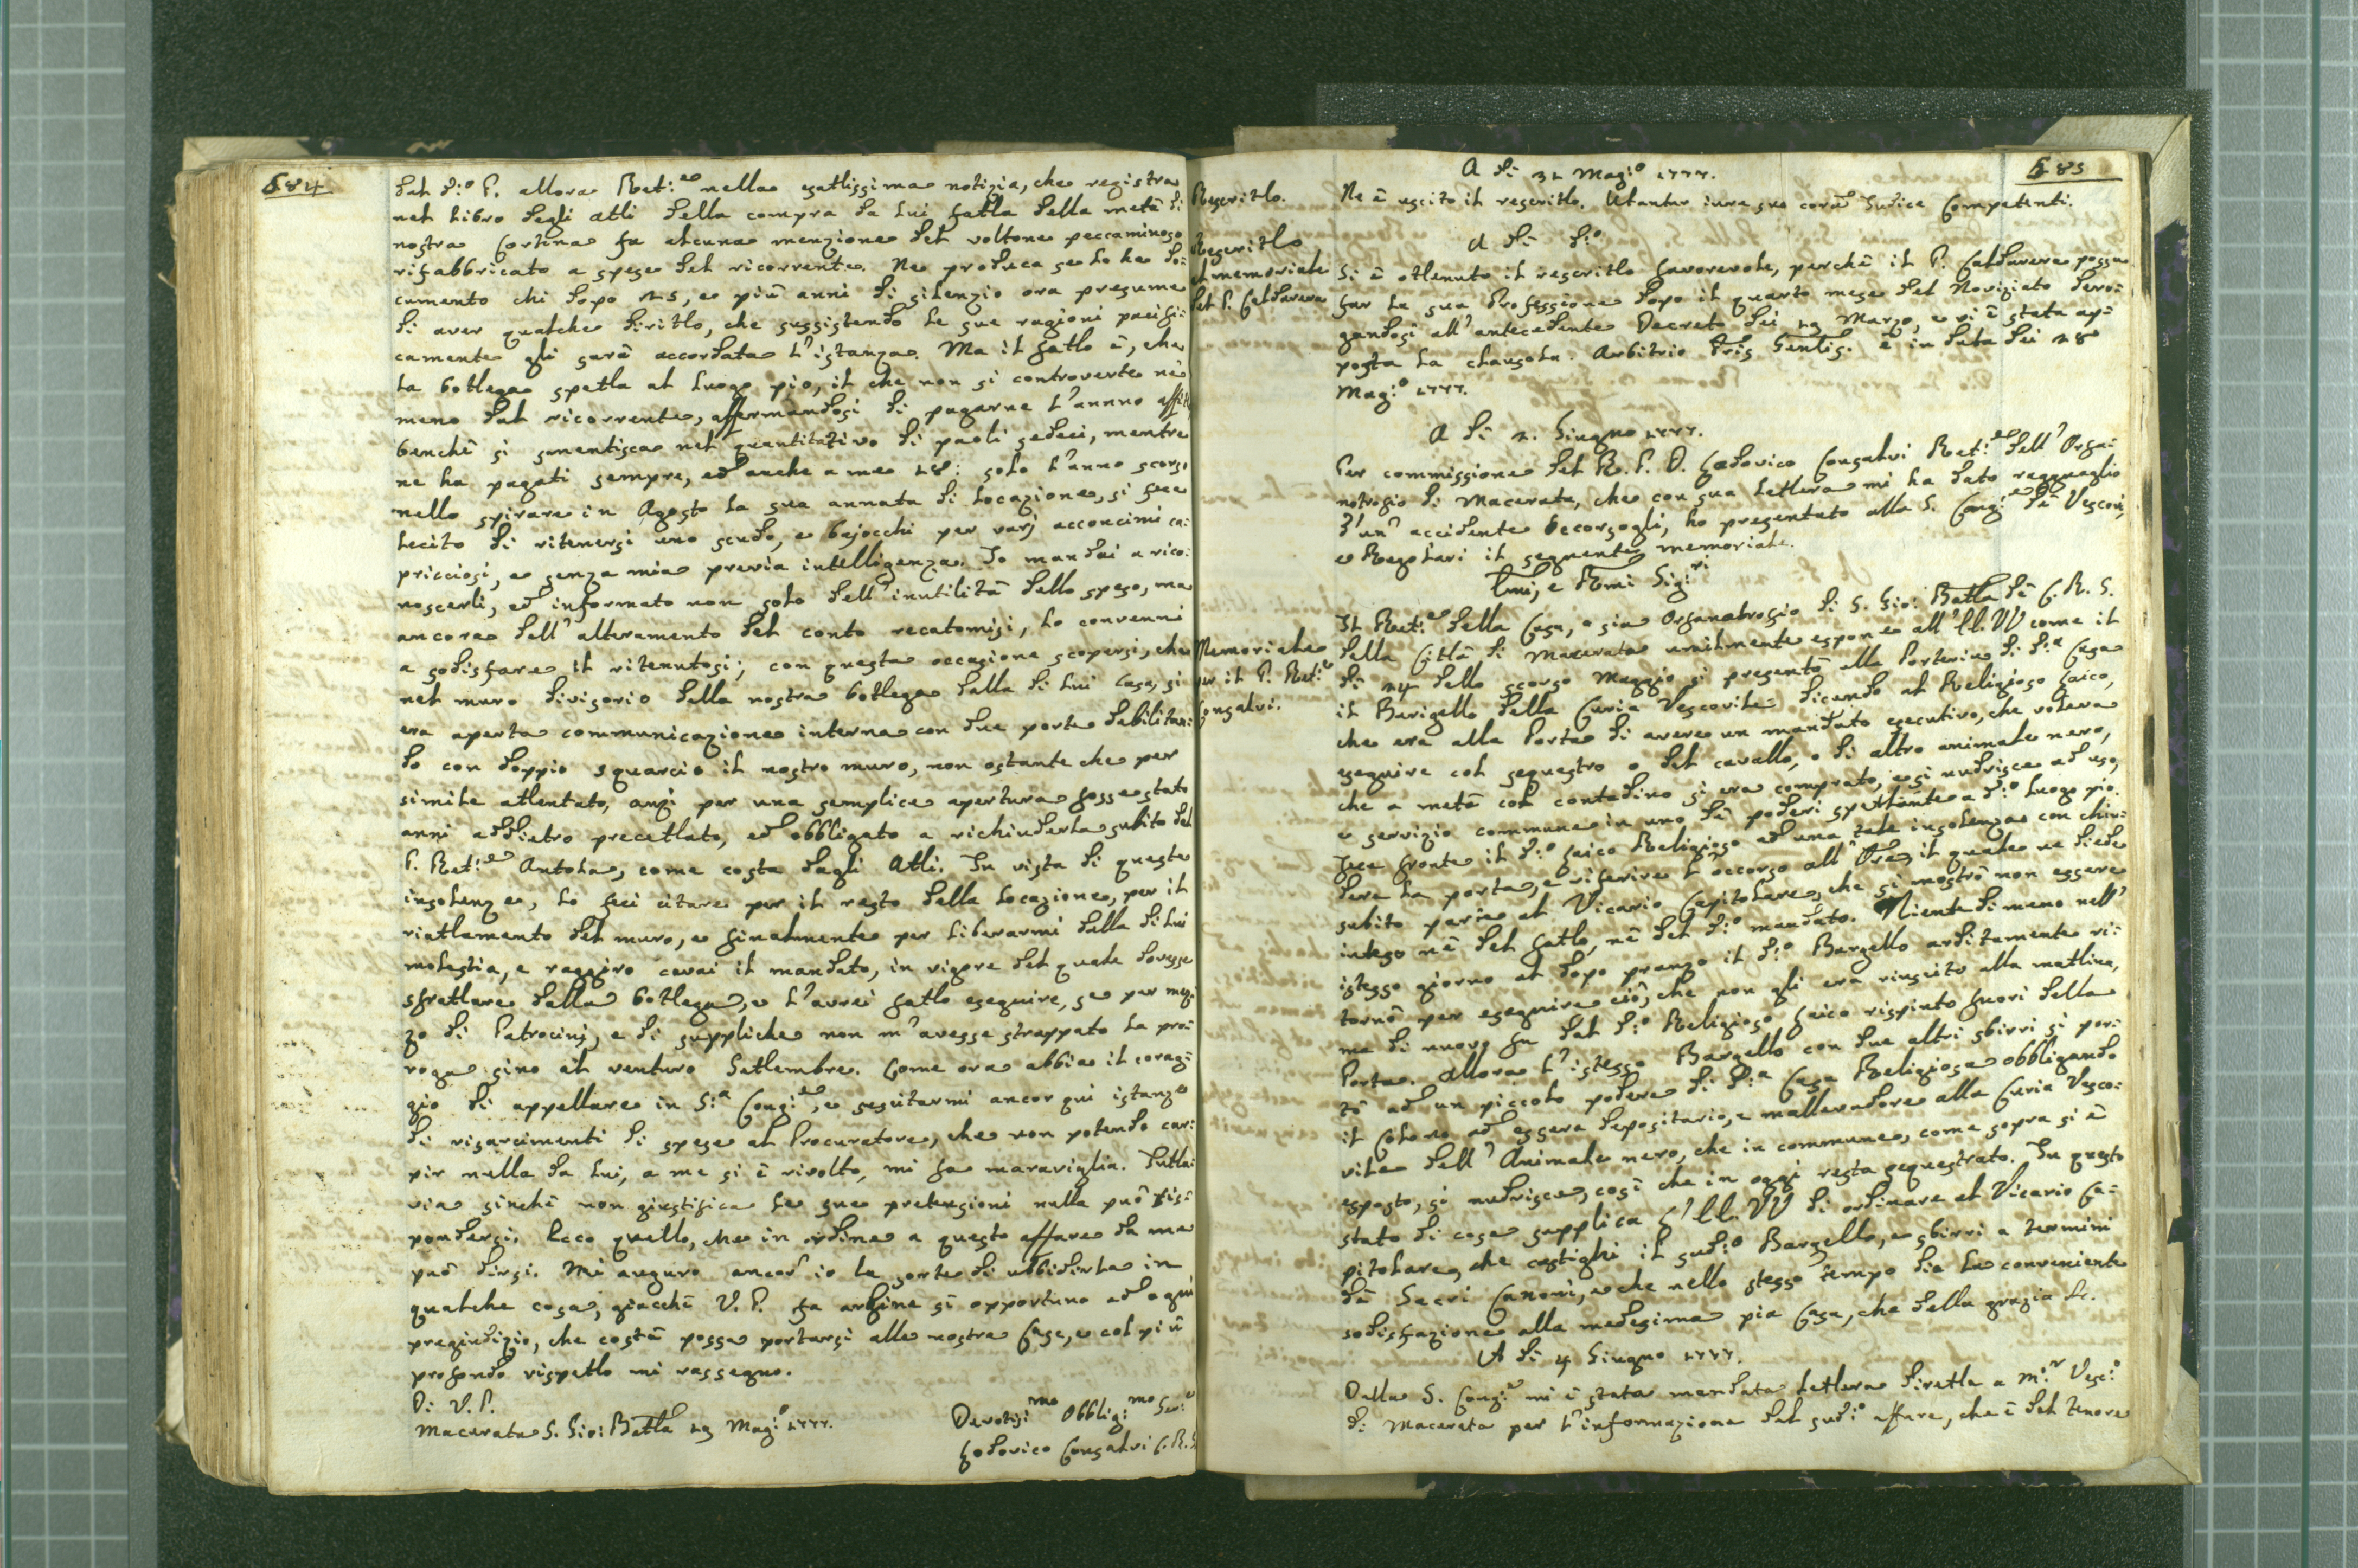 684
dal d:o P. allora Ret:re nella esattissima notizia, che registra
nel libro degli atti della compra da lui fatta della metà di
nostra Cortina fa alcuna menzione del voltone peccaminoso
rifabbricato a spese del ricorrente. Ne produca se lo ha do=
cumento chi dopo 25, e più anni di silenzio ora presume
di aver qualche diritto, che sussistendo le sue ragioni pacifi=
camente gli sarà accordata l'istanza. Ma il fatto è, che
la bottega spetta al luogo pio, il che non si controverte nè
meno dal ricorrente, affermandosi di pagarne l'annuo affitto
benchè si smentisca nel quantitativo di paoli sedeci, mentre
ne ha pagati sempre, ed anche a me 18: solo l'anno scorso
nello spirare in Agosto la sua annata di locazione, si fece
lecito di ritenersi uno scudo, e bajocchi per varj acconcimi ca=
pricciosi, e senza mia previa intelligenza. Io mandai a rico=
noscerli, ed informato non solo dell'inutilità dello speso, ma
ancora dell'alteramento del conto recatomisi, lo convenni
a sodisfare il ritenutosi; con questa occasione scopersi, che
nel muro divisorio della nostra bottega dalla di lui Casa, si
era aperta communicazione interna con due porte debilitan=
do con doppio squarcio il nostro muro, non ostante che per
simile attentato, anzi per una semplice apertura fosse stato
anni addietro precettato, ed obbligato a richiuderla subito dal
P. Ret:re Antola, come costa dagli Atti. In vista di queste
insolenze, lo feci citare per il resto della locazione, per il
riattamento del muro, e finalmente per liberarmi dalla di lui
molestia, e raggiro cavai il mandato, in vigore del quale dovesse
sfrattare dalla bottega, e l'avrei fatto eseguire, se per mez=
zo di Patrocinj, e di suppliche non m'avesse strappato la pro=
roga sino al venturo Settembre. Come ora abbia il corag=
gio di appellare in S:a Cong:ne, e suscitarmi ancor qui istanze
di risarcimenti di spese al Procuratore, che non potendo car=
pir nulla da lui, a me si è rivolto, mi fa maraviglia. Tutta=
via sinchè non giustifica le sue pretensioni nulla può ris=
pondersi. Ecco quello, che in ordine a questo affare da me
può dirsi. Mi auguro ancor io la sorte di ubbidirla in
qualche cosa, giacchè V. P. fa argine sì opportuno ad ogni
pregiudizio, che costà possa portarsi alle nostre Case, e col più
profondo rispetto mi rassegno.
Di V. P.
Macerata S. Gio: Batta 29 Mag:o 1777.
Devotis:mo Obblig:mo Ser:e
Lodovico Consalvi C.R.S.
685
A dì 31 Mag:o 1777.
Rescritto.
Ne è uscito il rescritto. Utantur iure suo coram Judice Competenti.
A dì d:o
Rescritto
al memoriale
del P. Caldarera
Si è ottenuto il rescritto favorevole, perchè il P. Caldarera possa
far la sua Professione dopo il quarto mese del Noviziato dero=
gandosi all'antecedente Decreto dei 29 Marzo, e vi è stata ap=
posta la clausola. Arbitrio Pris Gentis. è in data dei 28
Mag:o 1777.
A dì 2. Giugno 1777.
Per commissione del R. P. D. Lodovico Consalvi Ret:re dell'Orfa=
notrofio di Macerata, che con sua lettera mi ha dato ragguaglio
d'un accidente occorsogli, ho presentato alla S. Cong:ne dè Vescovi,
e Regolari il seguente memoriale.
Emi, e Rmi Sig:ri
Memoriale
per il P. Ret:re
Consalvi.
Il Ret:re della Casa, o sia Orfanatrofio di S. Gio: Batta dè C. R. S.
della Città di Macerata umilmente espone all'EE. VV come il
dì 24 dello scorso Maggio si presentò alla Porteria di d:a Casa
il Barigello della Curia Vescovile dicendo al Religioso Laico,
che era alla Porta di avere un mandato esecutivo, che voleva
eseguire col sequestro o del cavallo, o di altro animale nero,
che a metà col contadino si era comprato, e si nudrisce ad uso,
e servizio commune in uno dè poderi spettante a d:o luogo pio.
Fece fronte il d:o Laico Religioso ad una tale insolenza con chiu=
dere la porta, e riferire l'occorso all'Ore, il quale ne diede
subito parte al Vicario Capitolare, che si mostrò non essere
inteso nè del fatto, nè del d:o mandato. Niente di meno nell'
istesso giorno al dopo pranzo il d:o Bargello arditamente ri=
tornò per eseguire ciò, che non gli era riuscito alla mattina,
ma di nuovo fu dal d:o Religioso Laico rispinto fuori della
Porta. Allora l'istesso Bargello con due altri sbirri si por=
tò ad un piccolo podere di d:a Casa Religiosa obbligando
il Colono ad essere depositario, e mallevadore alla Curia Vesco=
vile dell'Animale nero, che in commune, come sopra si è
esposto, si nudrisce, così che in oggi resta sequestrato. In questo
stato di cose supplica l'EE. VV di ordinare al Vicario Ca=
pitolare, che castighi il sud:o Bargello, e sbirri a termini
dè Sacri Canoni, e che nello stesso tempo dia la conveniente
sodisfazione alla medesima pia Casa, che della grazia &c.
A dì 4 Giugno 1777.
Dalla S. Cong:ne mi è stata mandata lettera diretta a M:r Vesc:o
di Macerata per l'informazione del sud:o affare, che è del tenore